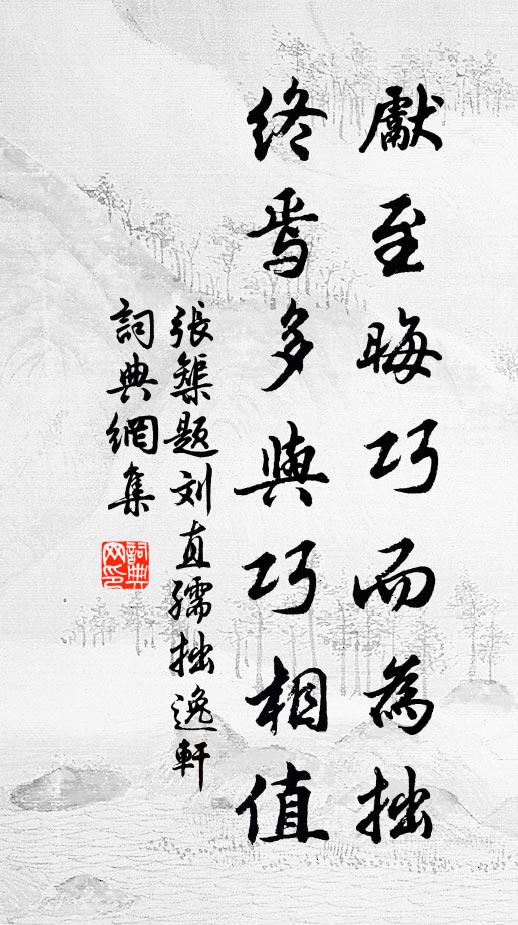 獻至晦巧而為拙
終焉多與巧相值
張榘題刘直孺拙逸軒
詞典網集
詞典网印